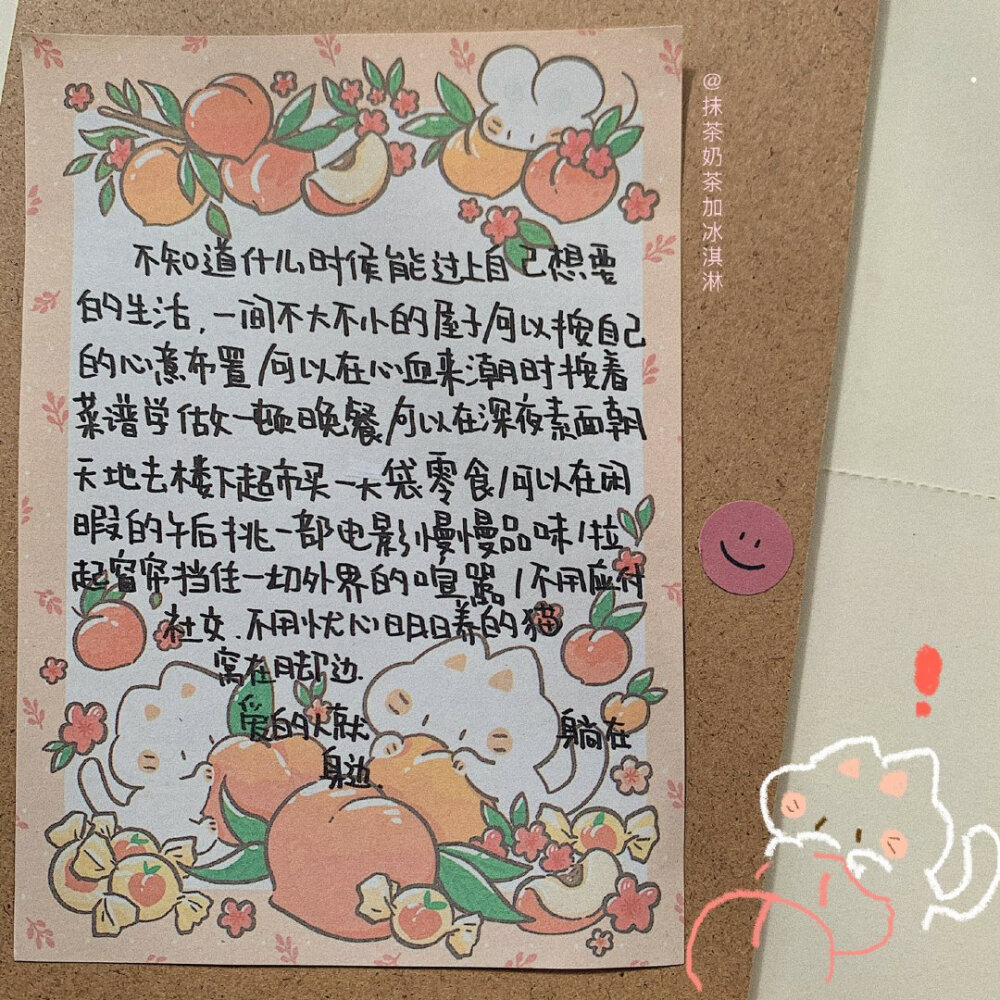 不知道什么时候能过上自己想要
的生活.一间不大不小的屋子/可以按自己
的心意布置/可以在心血来潮时按着
菜谱学做一顿晚餐/可以在深夜素面朝
天地去楼下超市买一大袋零食/可以在闲
暇的午后挑一部电影慢慢品味/拉
起窗帘挡住一切外界的喧嚣/不用应付
社交.不用忧心明日养的猫
窝在脚边.
爱的人就 躺在
身边.
@抹茶奶茶加冰淇淋
!